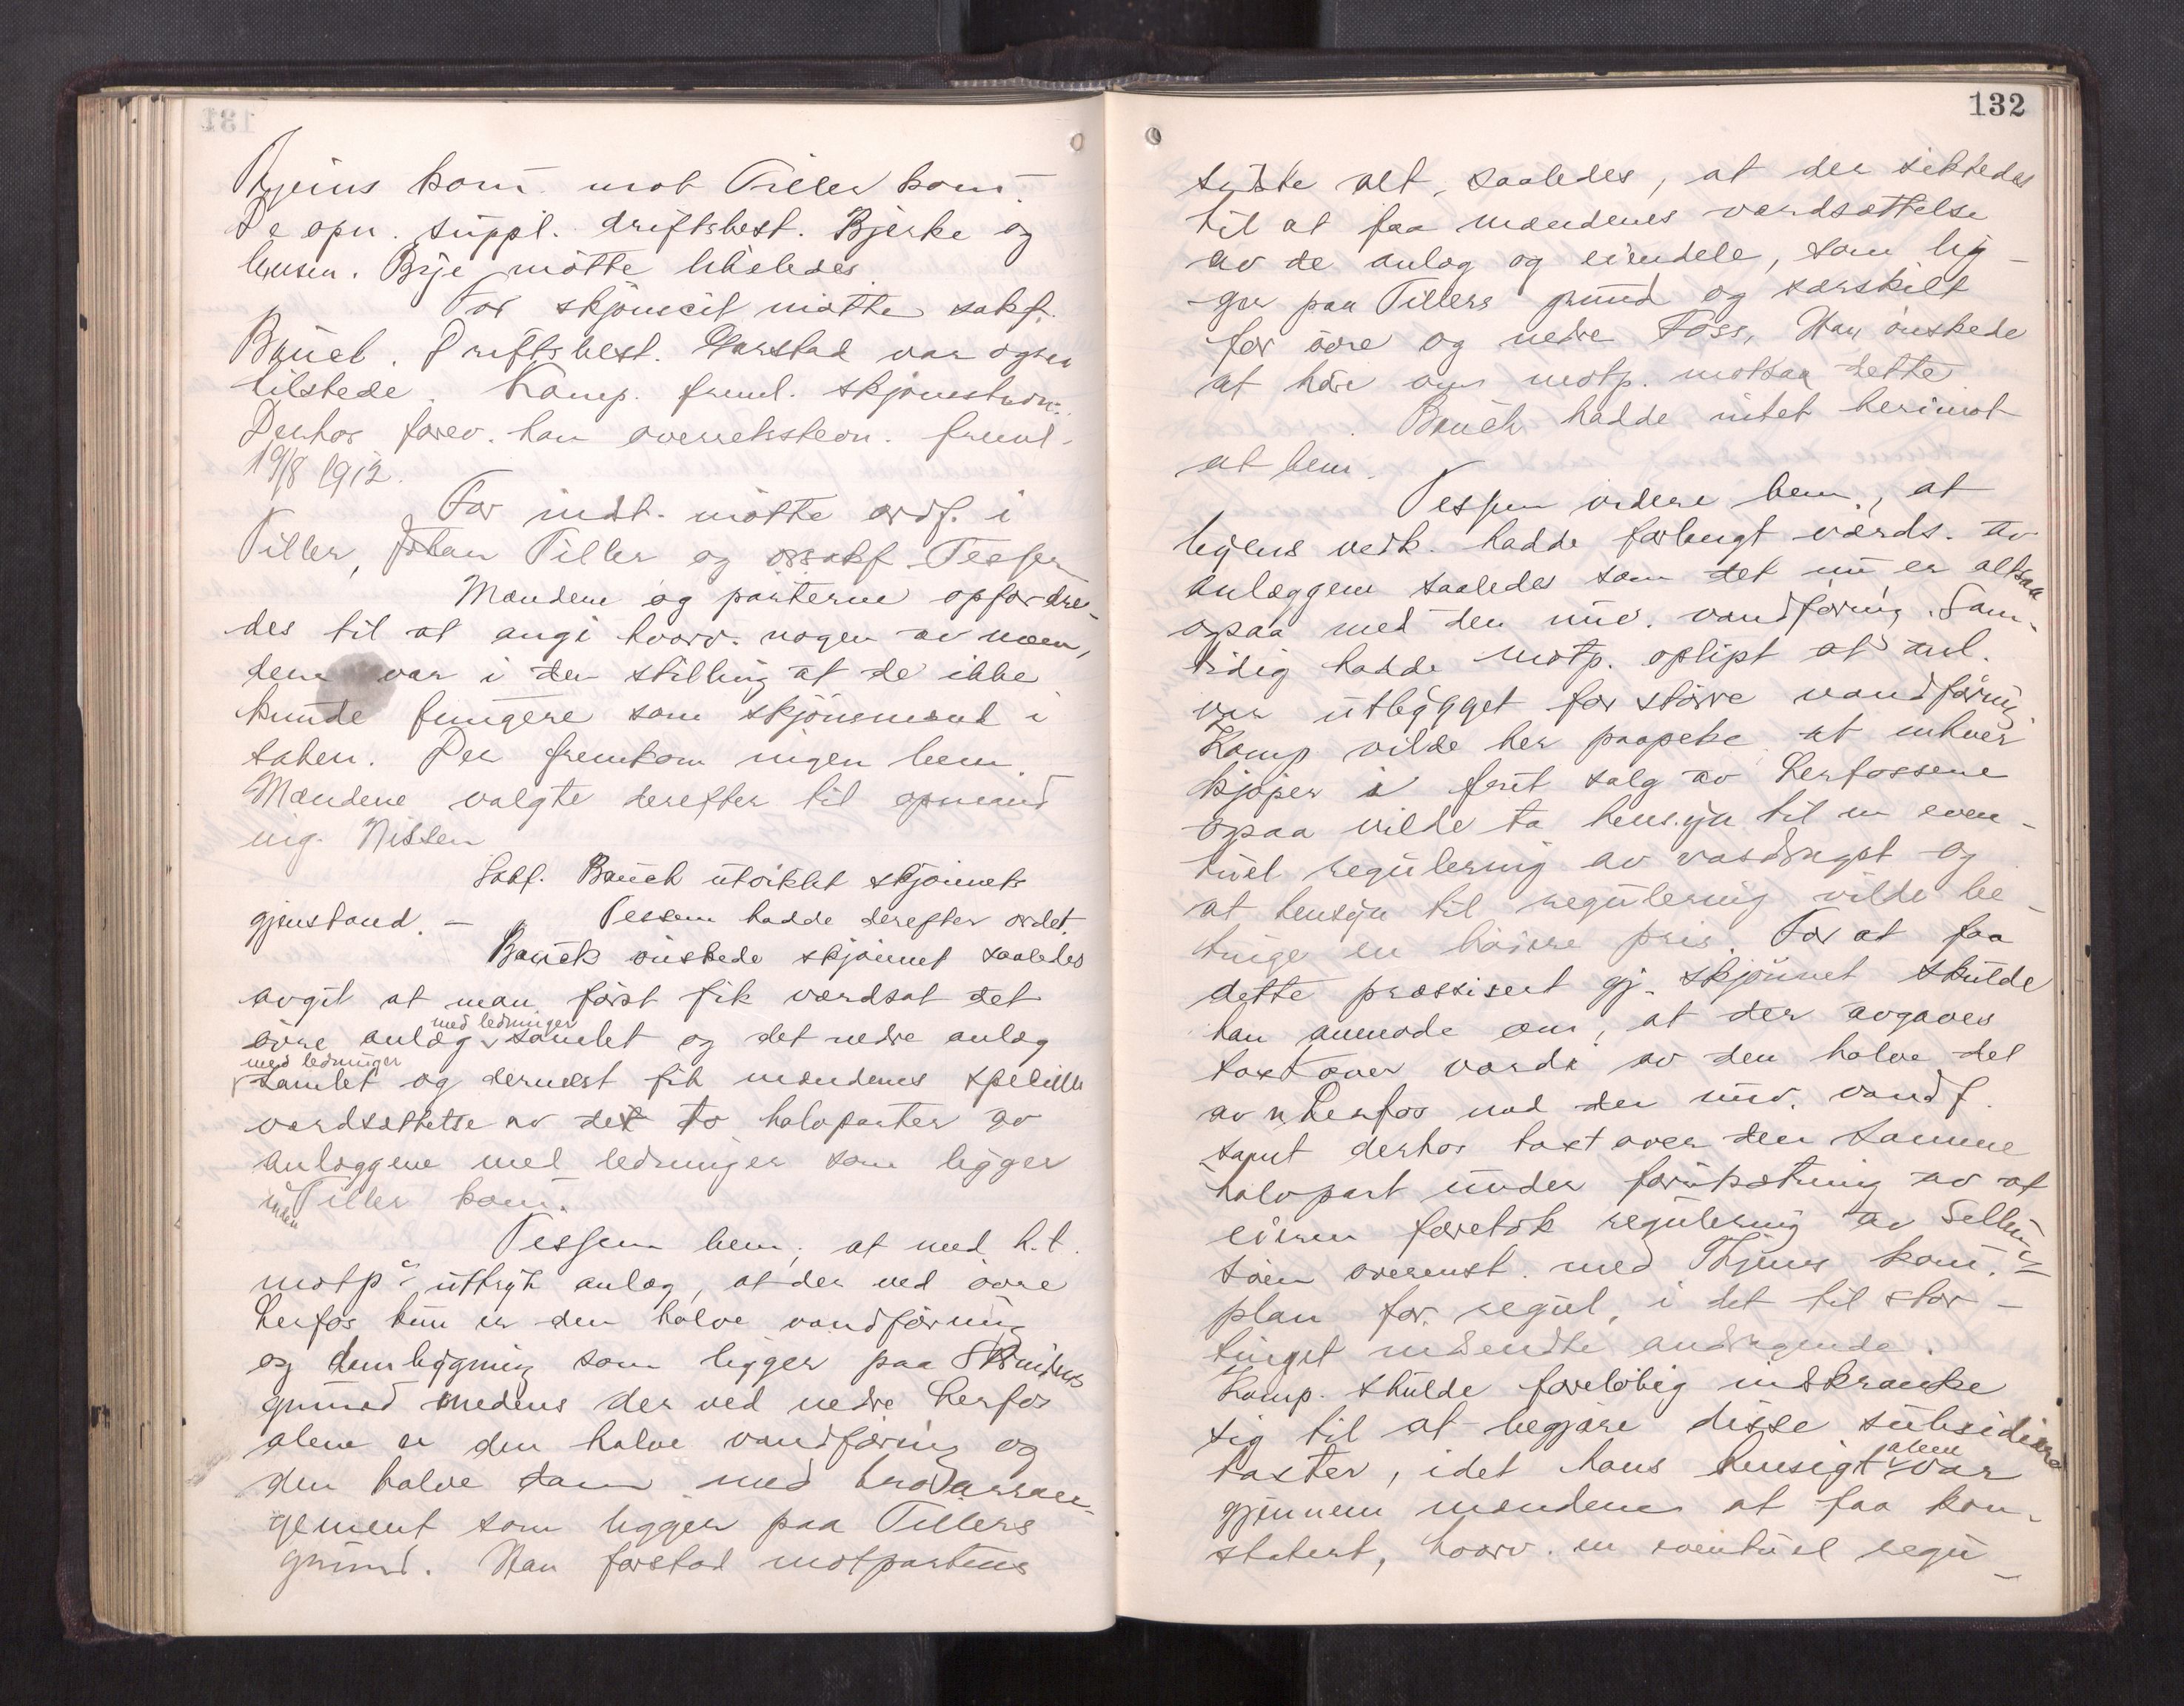 Thjems kom. mot Tiller kom.
De opn. suppl. driftsbest. Bjerke og
Brye møtte likeledes.
For skjønscit møtte sakf.
Bauck. Driftsbest. Garstad var ogsaa
tilstede. Komp. freml. skjønsstevn.
Derhos forev. han overretsstevn. freml.
19/8 1912.
For indst. møtte ordf. i
Tiller, Johan Tiller og orsakf. Tessem
Mændene og parterne opfordre-
des til at angi hvorv. nogen av mæn-
dene var i den stilling at de ikke
kunde fungere som skjønsmænd i
saken. Der fremkom ingen bem.
Mændene valgte derefter til opmand
ing. Nissen
Sakf. Bauck utviklet skjønnets
gjenstand. — Tessem hadde derefter ordet.
Bauck ønskede skjønnet saaledes
avgit at man først fik værdsat det
øvre anlæg med ledninger samlet og det nedre anlæg
med ledninger samlet og dernæst fik mændenes specielle
værdsættelse av de to halvparter av
anlæggene med ledninger som ligger
inden Tiller kom.
Tessem bem., at med h.t.
motp.s uttryk anlæg, at der ved øvre
Lerfos kun er den halve vandføring
og dambygning som ligger paa Strindens
grund medens der ved nedre Lerfos
alene er den halve vandføring og
den halve dam med
gement som ligger paa Tillers
grund. Han forstod motpartens
132
sidste alt saaledes, at der siktedes
til at faa mændenes værdsættelse
av de anlæg og eiendele, som lig-
ger paa Tillers grund og særskilt
for øvre og nedre Foss, Han ønskede
at høre om motp. motsaa dette.
Bauck hadde intet herimot
at bem.
Tessem videre bem., at
byens vedk. hadde forlangt værds. av
anlæggene saaledes som det nu er altsaa
ogsaa med den nuv. vandføring. Sam-
tidig hadde motp. oplyst at anl.
var utbygget for større vandføring.
Komp. vilde her paapeke at enhver
kjøper i frit salg av Lerfossene
ogsaa vilde ta hensyn til en even-
tuel regulering av vasdraget og
at hensyn til regulering vilde be-
tinge en høiere pris. For at faa
dette præssisert gj. skjønnet skulde
han anmode om, at der avgaves
takst over værdi av den halve del
av n. Lerfos med den nuv. vandf.
samt derhos takst over den samme
halvpart under forutsætning av at
eieren foretok regulering av Selbu-
sjøen overenst. med Thjems kom.s
plan for regul. i det til stor-
tinget indsendte andragende.
Komp. skulde foreløbig indskrænke
sig til at begjære disse subsidiære
takster, idet hans hensigt alene var
gjennem mændene at faa kon-
statert, hvorv. en eventuel regu-